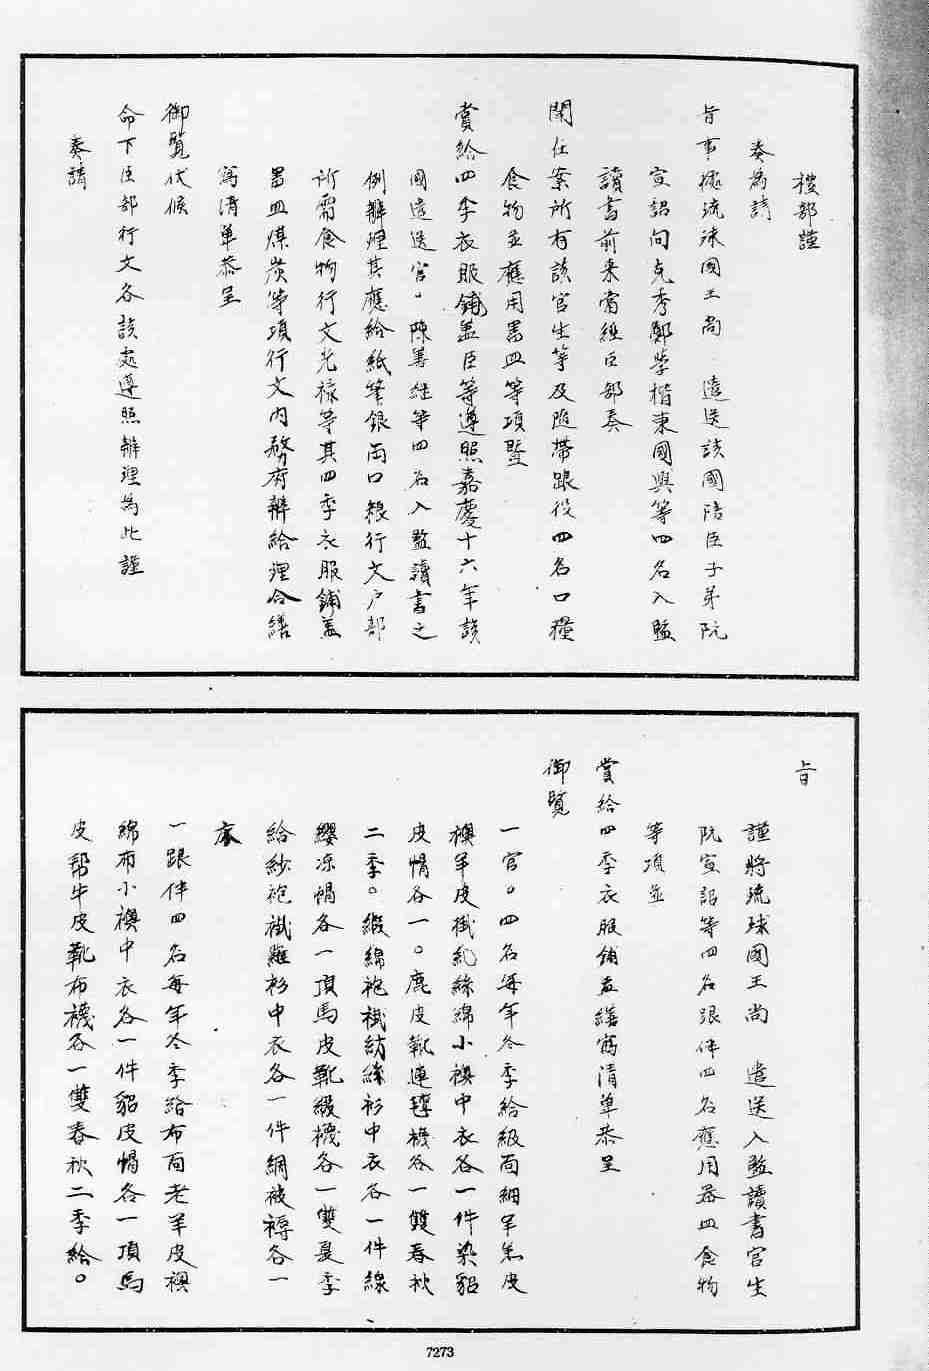 禮部謹
奏為請
旨事據琉球國王尚 遣送該國陪臣子弟阮
宣詔向克秀鄭學楷東國興等四名入監
讀書前來當經臣部奏
聞在案所有該官生等及隨帶跟役四名口糧
食物並應用器皿等項暨
賞給四季衣服鋪蓋臣等遵照嘉慶十六年該
國遣送官。陳善継等四名入監讀書之
例辦理其應給紙筆銀兩口粮行文戶部
所需食物行文光祿等其四季衣服鋪蓋
器皿煤炭等項行文內務府辦給理合繕
寫清单恭呈
御覽伏候
命下臣部行文各該處遵照辦理為此謹
奏請
旨
謹將琉球國王尚 遣送入監讀書官生
阮宣詔等四名跟伴四名應用器皿食物
等項並
賞給四季衣服鋪盖繕寫清单恭呈
御覽
一官。四名每年冬季給緞面細羊羔皮
襖羊皮褂紡絲綿小襖中衣各一件染貂
皮帽各一。鹿皮靴連氊襪各一雙春秋
二季。緞綿袍褂紡絲衫中衣各一件線
纓凉帽各一頂馬皮靴緞襪各一雙夏季
給紗袍褂羅衫中衣各一件綢被褥各一
床
一跟伴四名每年冬季給布面老羊皮襖
綿布小襖中衣各一件貂皮帽各一頂馬
皮幫牛皮靴布襪各一雙春秋二季給。
7273